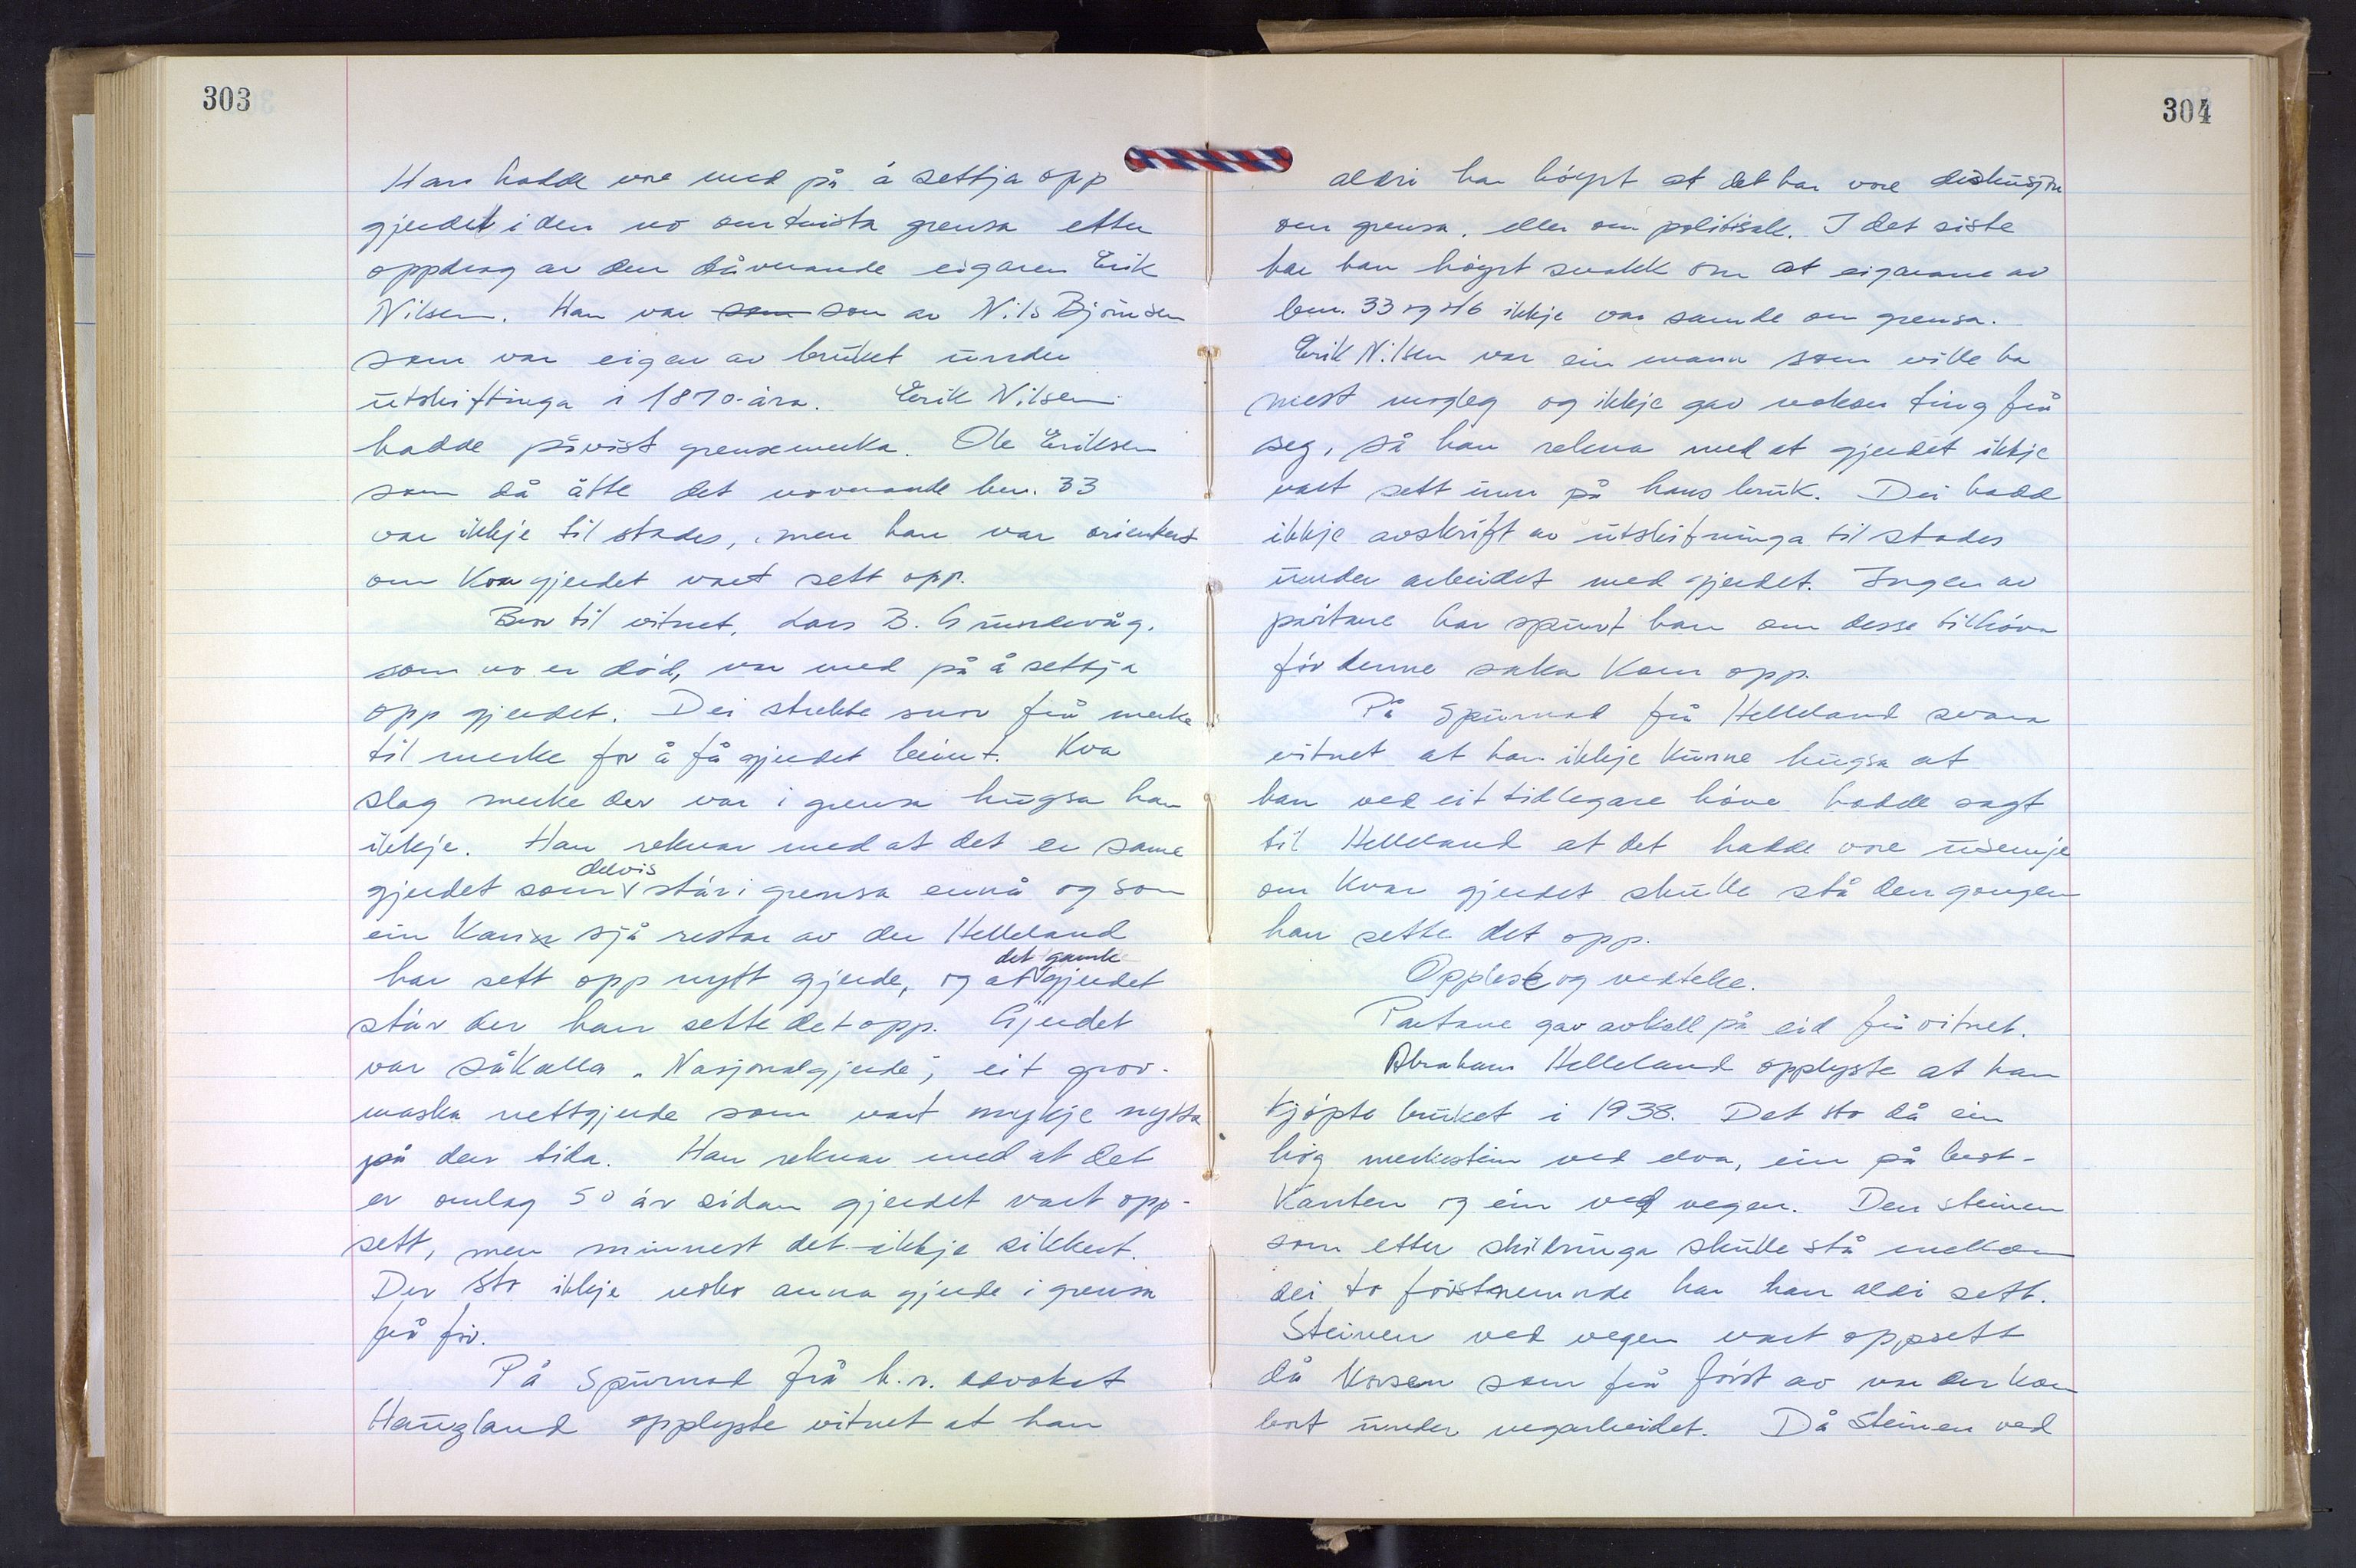 303
Han hadde vore med på å settja opp
gjerdet i den no omtvista grensa etter
oppdrag av den dåverande eigaren Erik
Nilsen. Han var som son av Nils Bjørnsen
som var eigar av bruket under
utskiftinga i 1870-åra. Erik Nilsen
hadde påvist grensemerka. Ole Eriksen
som då åtte det noverande bnr. 33
var ikkje til stades, men han var orientert
om kvar gjerdet vart sett opp.
Bror til vitnet, Lars B. Grindevåg,
som no er död, var med på å settja
opp gjerdet. Dei strekte snor frå merke
til merke for å få gjerdet beint. Kva
slag merke der var i grensa hugsa han
ikkje. Han reknar med at det er same
delvis
gjerdet som står i grensa ennå og som
ein kan sjå restar av der Helleland
det gamle
har sett opp nytt gjerde, og at gjerdet
står der han sette det opp. Gjerdet
var såkalla "Nasjonalgjerde", eit grov-
maska nettgjerde som vart mykje nytta
på den tida. Han reknar med at det
er omlag 50 år sidan gjerdet vart opp-
sett, men minnest det ikkje sikkert.
Der sto ikkje noko anna gjerde i grensa
frå för.
På spurnad frå h.r. advokat
Haugland opplyste vitnet at han
304
aldri har höyrt at det har vore diskusjon
om grensa, eller om politisak. I det siste
har han höyrt snakk om at eigarane av
bnr. 33 og 46 ikkje var samde om grensa.
Erik Nilsen var ein mann som ville ha
mest mogleg og ikkje gav nokon ting frå
seg, så han rekna med at gjerdet ikkje
vart sett inn på hans bruk. Dei hadde
ikkje avskrift av utskiftninga til stades
under arbeidet med gjerdet. Ingen av
partane har spurt han om desse tilhöva
för denne saka kom opp.
På spurnad frå Helleland svara
vitnet at han ikkje kunne hugsa at
han ved eit tidlegare höve hadde sagt
til Helleland at det hadde vore usemje
om kvar gjerdet skulle stå den gongen
han sette det opp.
Opplest og vedteke.
Partane gav avkall på eid frå vitnet.
Abraham Helleland opplyste at han
kjöpte bruket i 1938. Det sto då ein
hög merkestein ved elva, ein på
kanten og ein ved vegen. Den steinen
som etter skildringa skulle stå mellom
dei to förstnemnde har han aldri sett.
Steinen ved vegen vart oppsett
då krossen som frå först av var der kom
bort under vegarbeidet. Då steinen ved